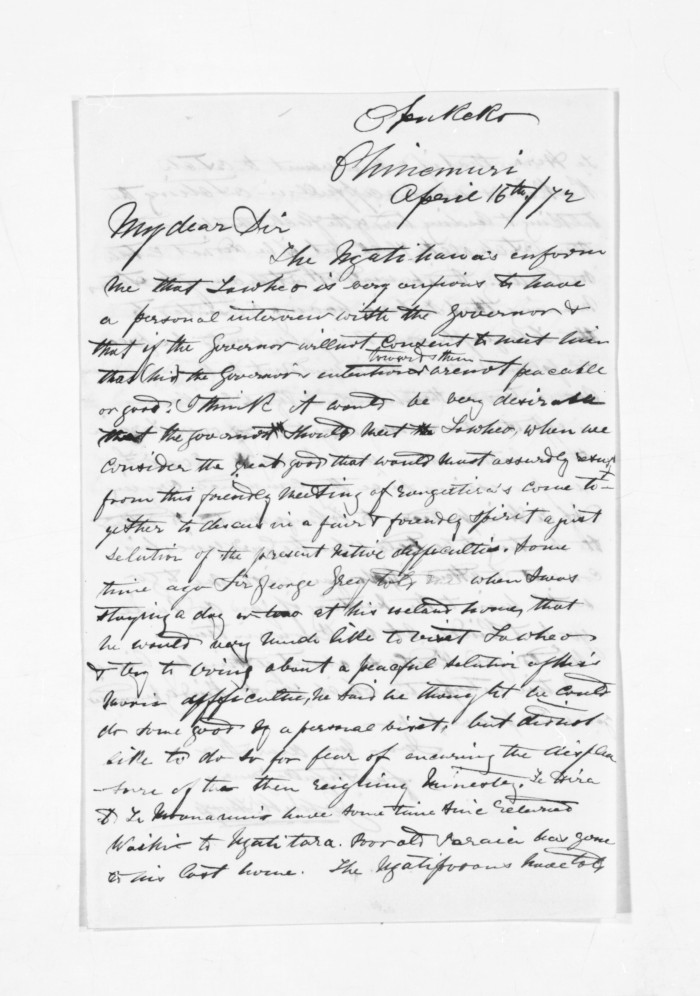 Opukeko
Ohinemuri
April 16th/72
My dear Sir
The Ngatihauas enform
me that Tawheo is very anxious to have
a personal interview with the Governor &
that if the Governor will not consent to meet him
that his the Governor's intentions towards them are not peacable
or good. I think it would be very desirable
that the governor should meet Tawheo, when we
consider the great good that would most assurdly result
from this friendly meeting of Rangitira's come to-
gether to discus in a fair & friendly spirit a just
selution of the present native difficulties. Some
time ago Sir George Grey told me when I was
staying a day or two at his island home, that
he would very much like to visit Tawheo
& try to bring about a peaceful selution of this
Maori difficulties, he said he thought he could
do some good by a personal visit, but did not
like to do so for fear of encuring the displea
-sure of the then reigning Minestry. Te Hira
& Te Moananui's have some time sinc returned
Waihi to Ngatitara. Poor old has gone
to his last home. The Ngatiporous have told